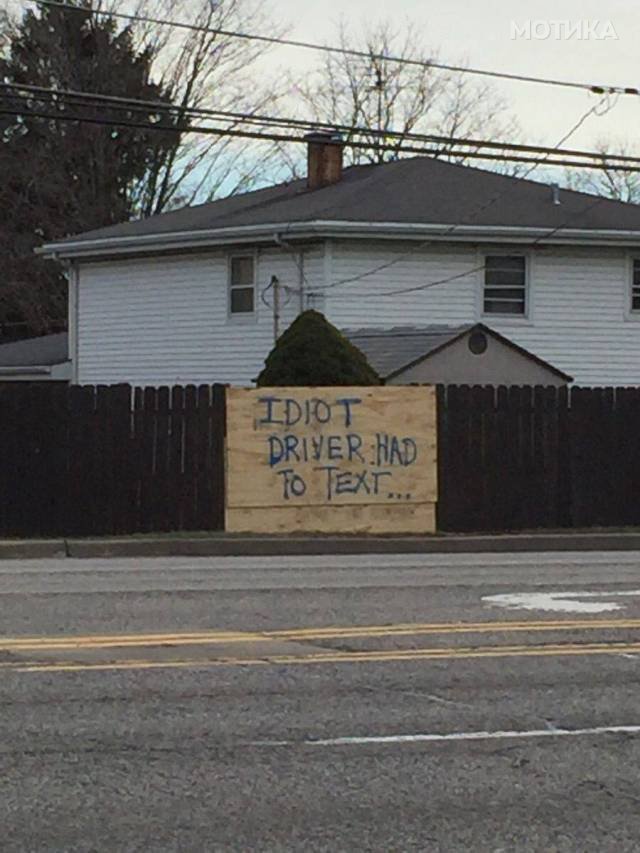 МОТИКА
IDIOT
DRIVER HAD
TO TEXT...